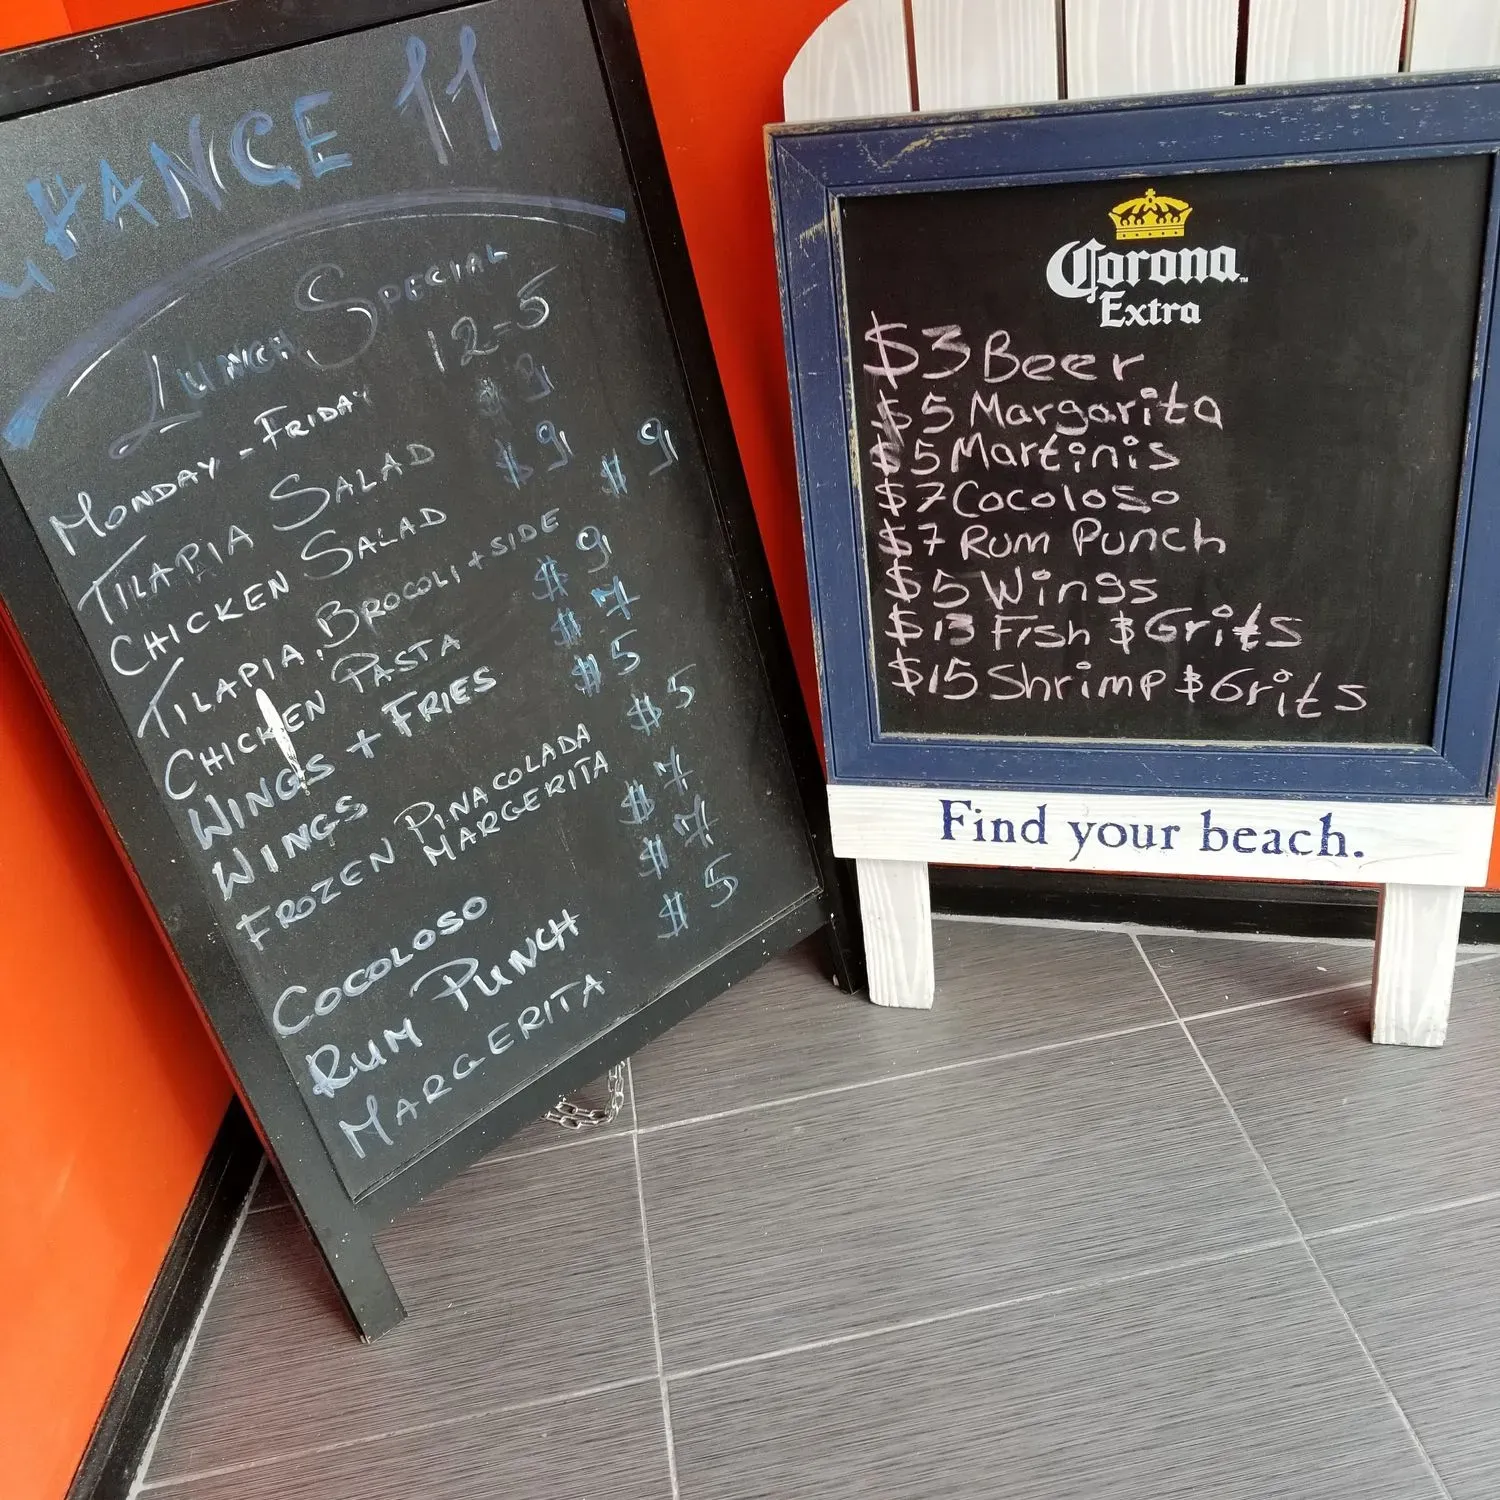 11
LUNCH SPECIAL
MONDAY - FRIDAY 12-5
TILAPIA SALAD $9
CHICKEN SALAD $9
TILAPIA, BROCOLI + SIDE $9
CHICKEN PASTA $9
WINGS + FRIES $7
WINGS $5
FROZEN PINACOLADA $5
MARGERITA
COCOLOSO $7
RUM PUNCH $7
MARGERITA $5
Corona
Extra
$3 Beer
$5 Margarita
$5 Martinis
$7 Cocoloso
$7 Rum Punch
$5 Wings
$13 Fish $ Grits
$15 Shrimp $ Grits
Find your beach.